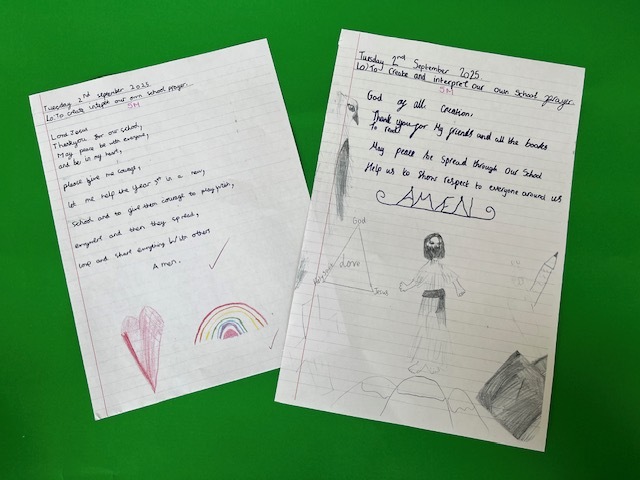 Tuesday 2nd September 2025
LO: To create intepret our own school prayer.
SM
Lord Jesus
Thankyou for our school,
May peace be with everyone,
and be in my heart,
please give me courage,
let me help the year 3rd in a new,
school and to give them courage to play with,
everyone and then they spread,
love and share everything with others
Amen.
Tuesday 2nd September 2025
LO: To create and interpret our own School prayer
SM
God of all creation,
Thank you for My friends and all the books
To read
May peace be spread through our School
Help us to show respect to everyone around us
AMEN
God
Holy Spirit
love
Jesus